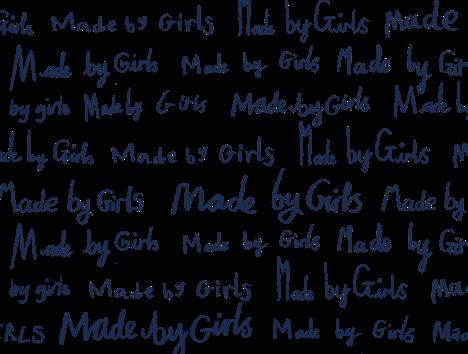 Girls Made by Girls Made by Girls Made
Made by Girls Made by Girls Made by Gir
by girls Made by Girls Made by Girls Made b
ade by Girls Made by Girls Made by Girls M
Made by Girls Made by Girls Made by
Made by Girls Made by Girls Made by Gir
by girls Made by Girls Made by Girls Mad
IRLS Made by Girls Made by Girls Mad